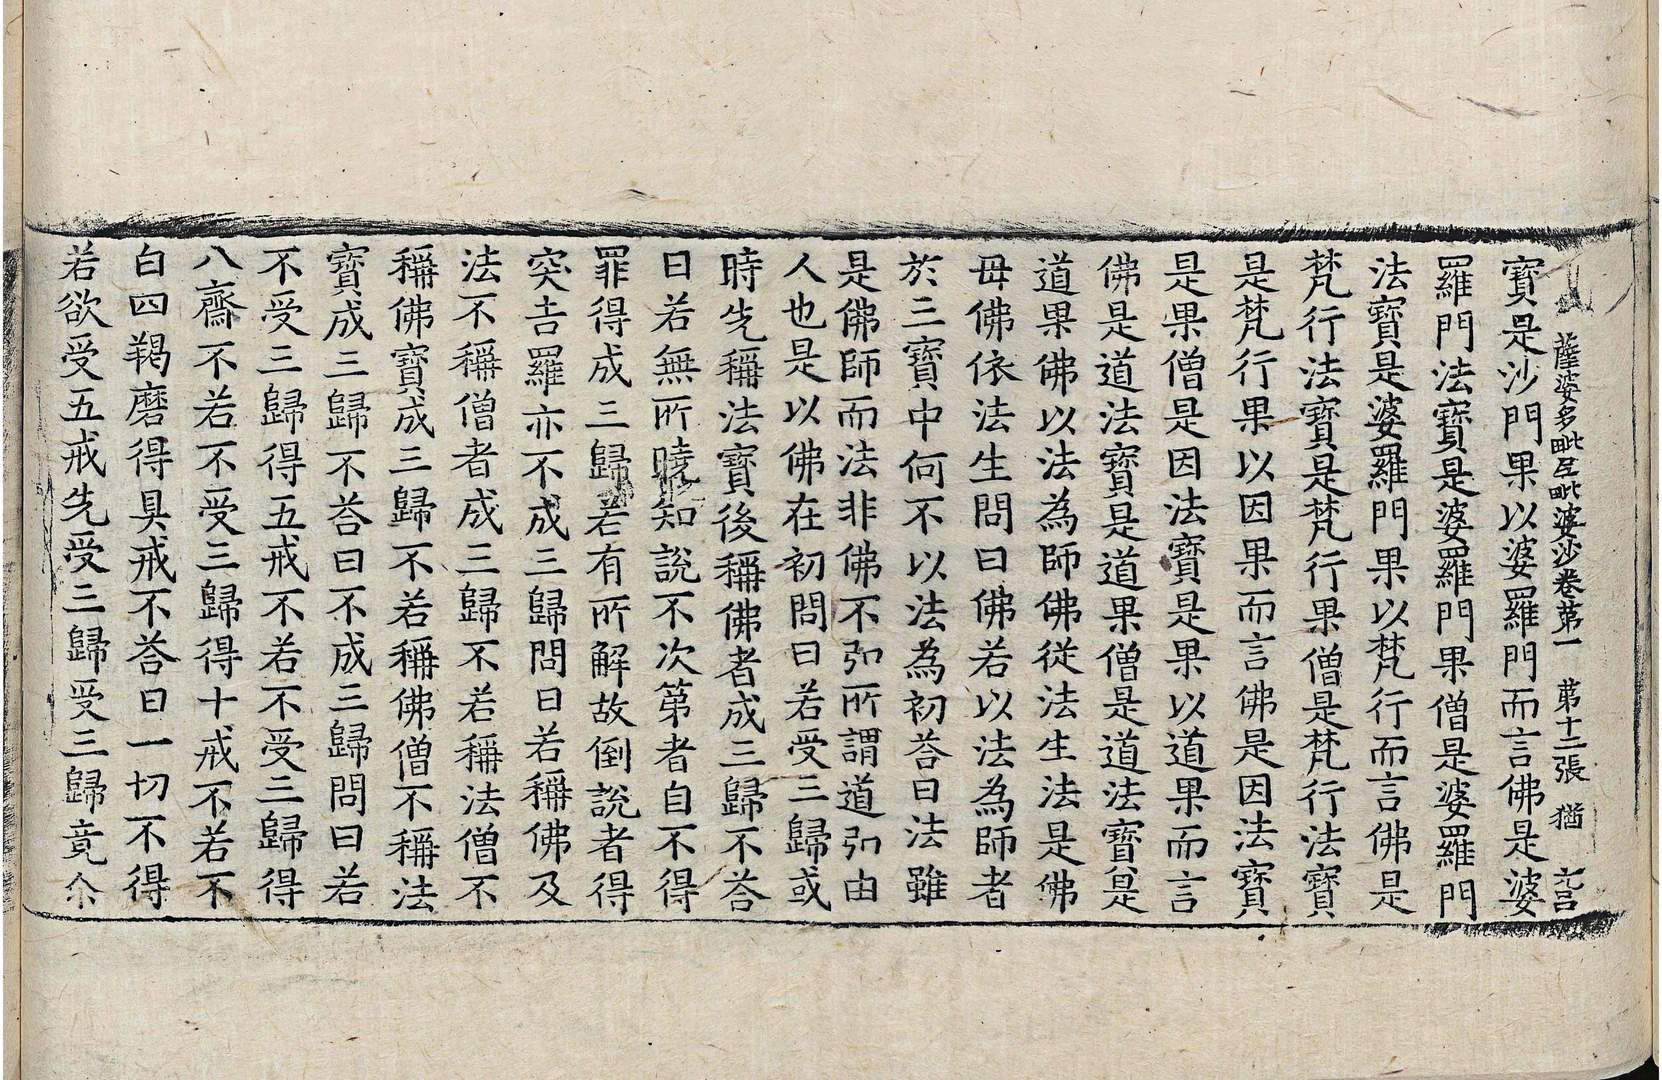 薩婆多毗尼毗婆沙卷第一 第十二張 猶 
寶是沙門果以婆羅門而言佛是婆
羅門法寶是婆羅門果僧是婆羅門
法寶是婆羅門果以梵行而言佛是
梵行法寶是梵行果僧是梵行法寶
是梵行果以因果而言佛是因法寶
是果僧是因法寶是果以道果而言
佛是道法寶是道果僧是道法寶是
道果佛以法為師佛從法生法是佛
母佛依法生問曰佛若以法為師者
於三寶中何不以法為初荅曰法雖
是佛師而法非佛不弘所謂道弘由
人也是以佛在初問曰若受三歸或
時先稱法寶後稱佛者成三歸不荅
曰若無所曉知說不次第者自不得
罪得成三歸若有所解故倒說者得
突吉羅亦不成三歸問曰若稱佛及
法不稱僧者成三歸不若稱法僧不
稱佛寶成三歸不若稱佛僧不稱法
寶成三歸不荅曰不成三歸問曰若
不受三歸得五戒不若不受三歸得
八齋不若不受三歸得十戒不若不
白四羯磨得具戒不荅曰一切不得
若欲受五戒先受三歸受三歸竟尒